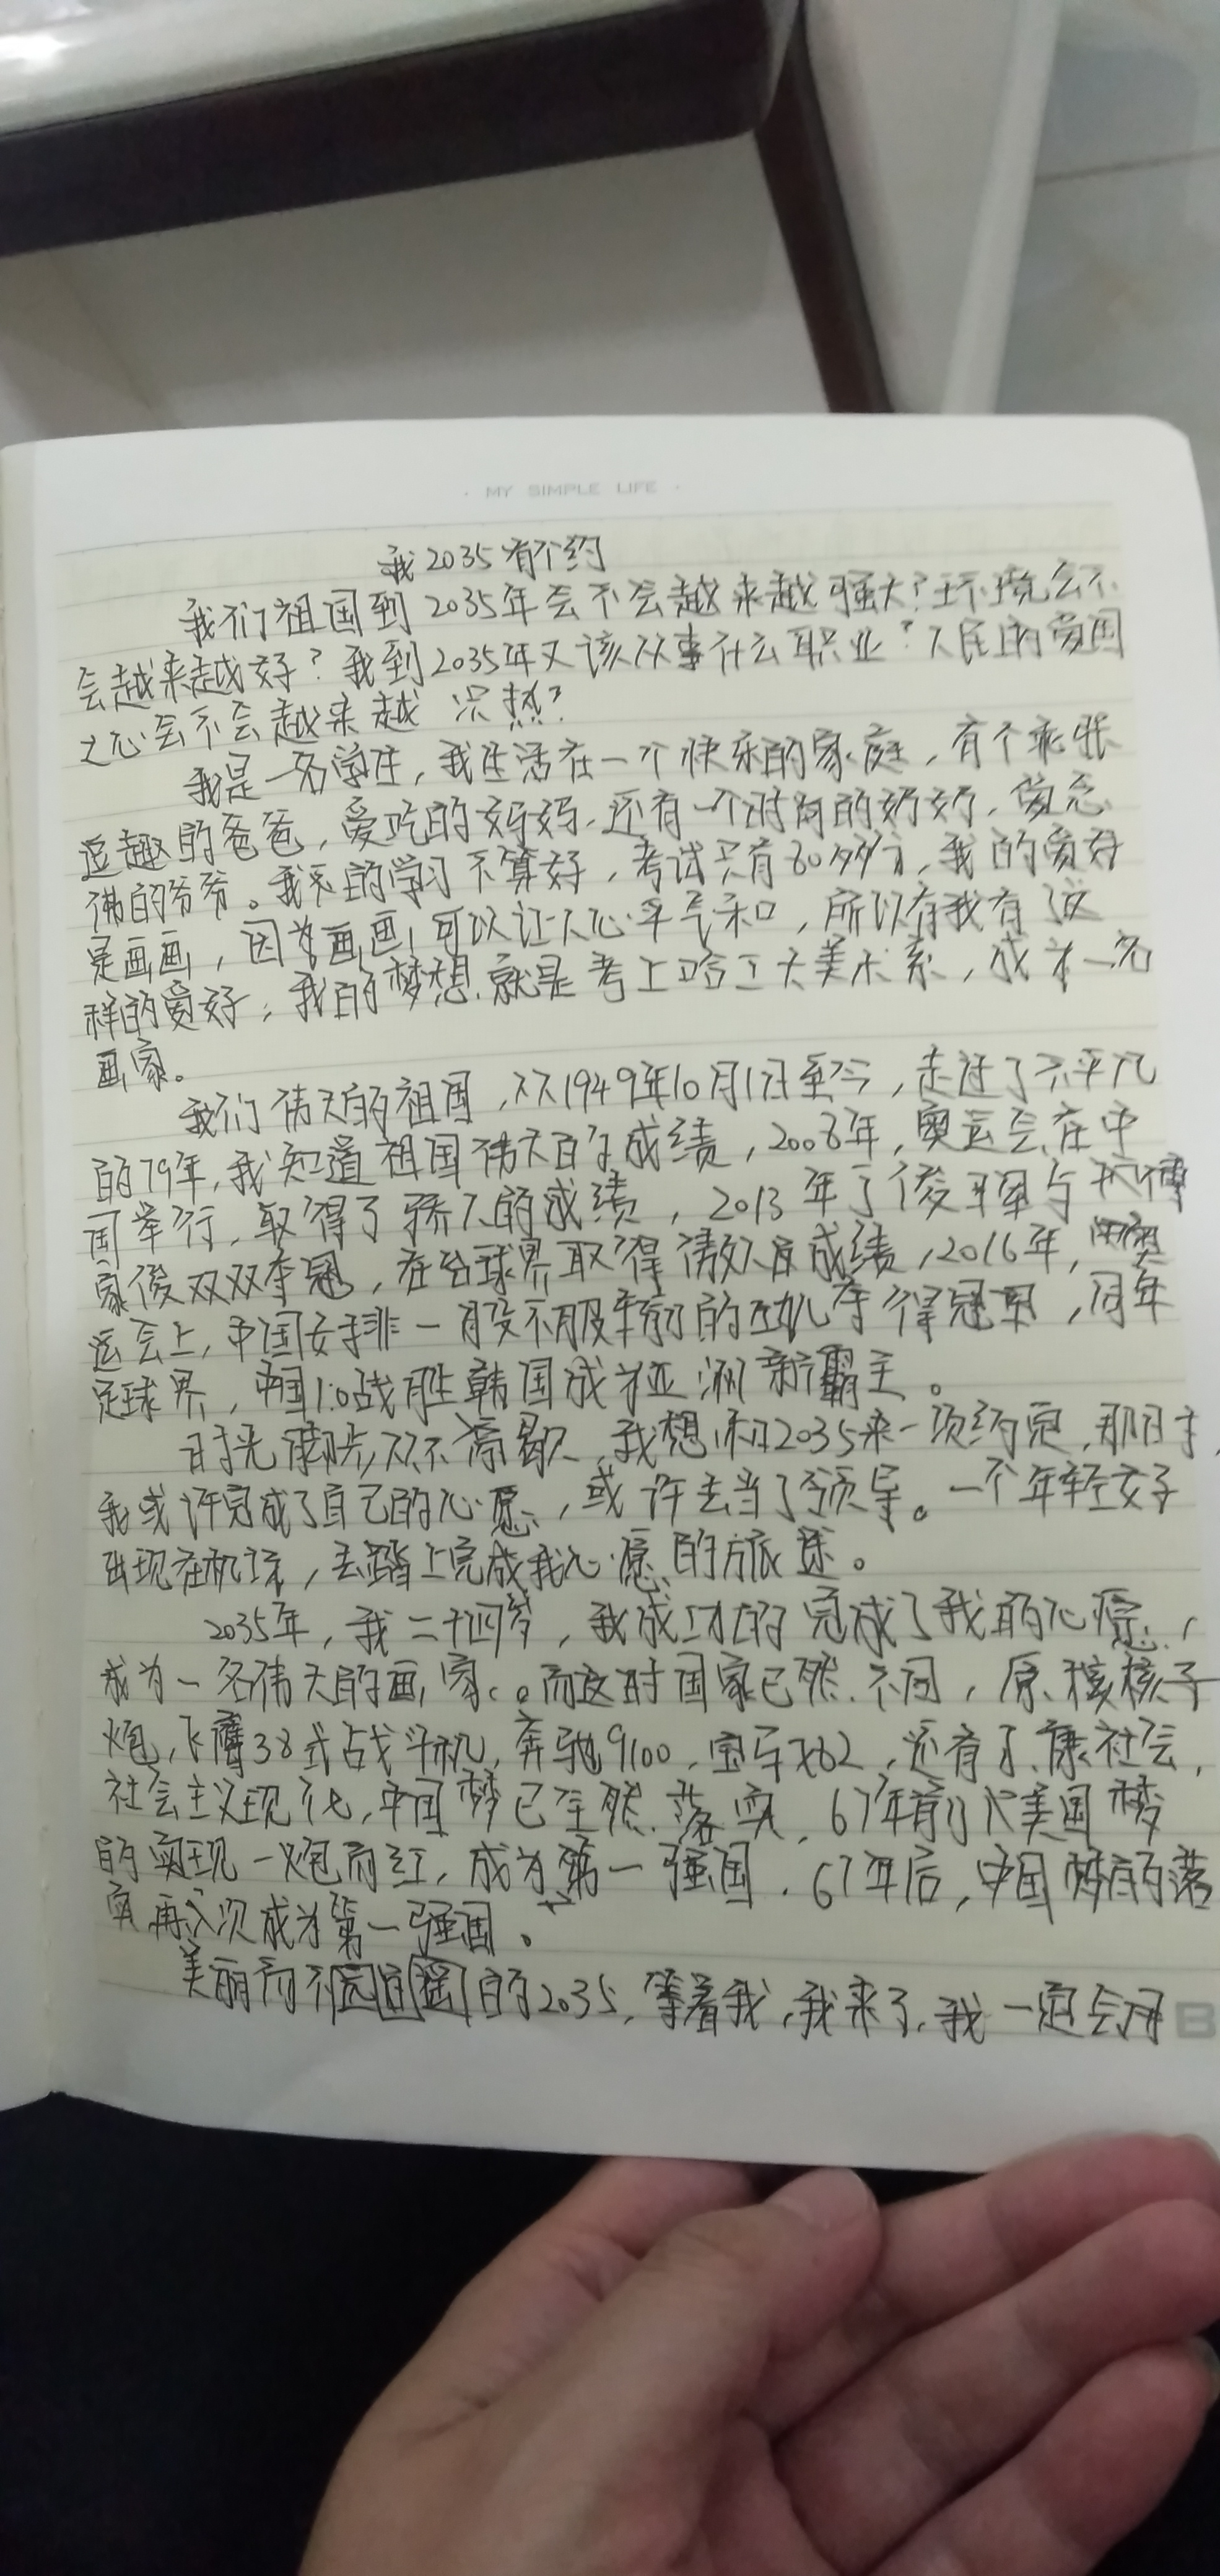 · MY SIMPLE LIFE ·
我2035有个约
我们祖国到2035年会不会越来越强大?环境会不
会越来越好?我到2035年又该从事什么职业?人民的爱国
之心会不会越来越 热?
我是一名学生,我生活在一个快乐的家庭,有个
逗趣的爸爸,爱吃的妈妈,还有一个时尚的奶奶,爱念
佛的爷爷。我的学习不算好,考试只有80多分,我的爱好
是画画,因为画画可以让人心平气和,所以有我有这
样的爱好,我的梦想就是考上哈工大美术系,成为一名
画家。
我们伟大的祖国,从1949年10月1日至今,走过了不平凡
的79年,我知道祖国伟大的成绩,2008年,奥运会在中
国举行,取得了骄人的成绩,2013年丁俊晖与
家俊双双夺冠,在台球界取得傲人成绩,2016年,奥
运会上,中国女排一股不服输的 夺得冠军,同年
足球界,中国1:0战胜韩国成为亚洲新霸主。
时光脚步从不停歇,我想和2035来一项约定,那时,
我或许完成了自己的心愿,或许去当了领导。一个年轻女子
出现在机场,去踏上完成我心愿的旅途。
2035年,我二十四岁,我成功的完成了我的心愿,
成为一名伟大的画家。而这时国家已然不同,原核核子
炮,飞鹰38式战斗机,奔驰9100,宝马X62,还有了康社会,
社会主义现代化,中国梦已全然落实,67年前美国梦
的实现一炮而红,成为第一强国,67年后,中国梦的落
实再次成为第一强国。
美丽而不 的2035,等着我,我来了,我一定会用
B